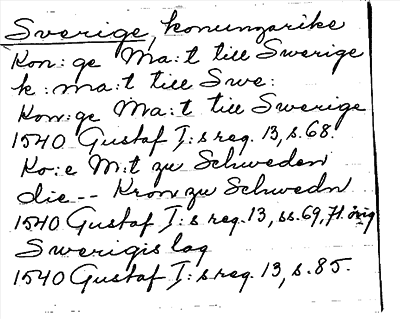 Sverige, konungarike
Kon:ge Ma:t till Swerige
k:ma:t till Swe:
Kon:ge Ma:t till Swerige
1540 Gustaf I:s reg. 13, s. 68.
Ko:e M:t zu Schweden
die -- Kron zu Schwedn
1540 Gustaf I:s reg. 13, ss. 69, 71. orig
Swerigis lag
1540 Gustaf I:s reg. 13, s. 85.